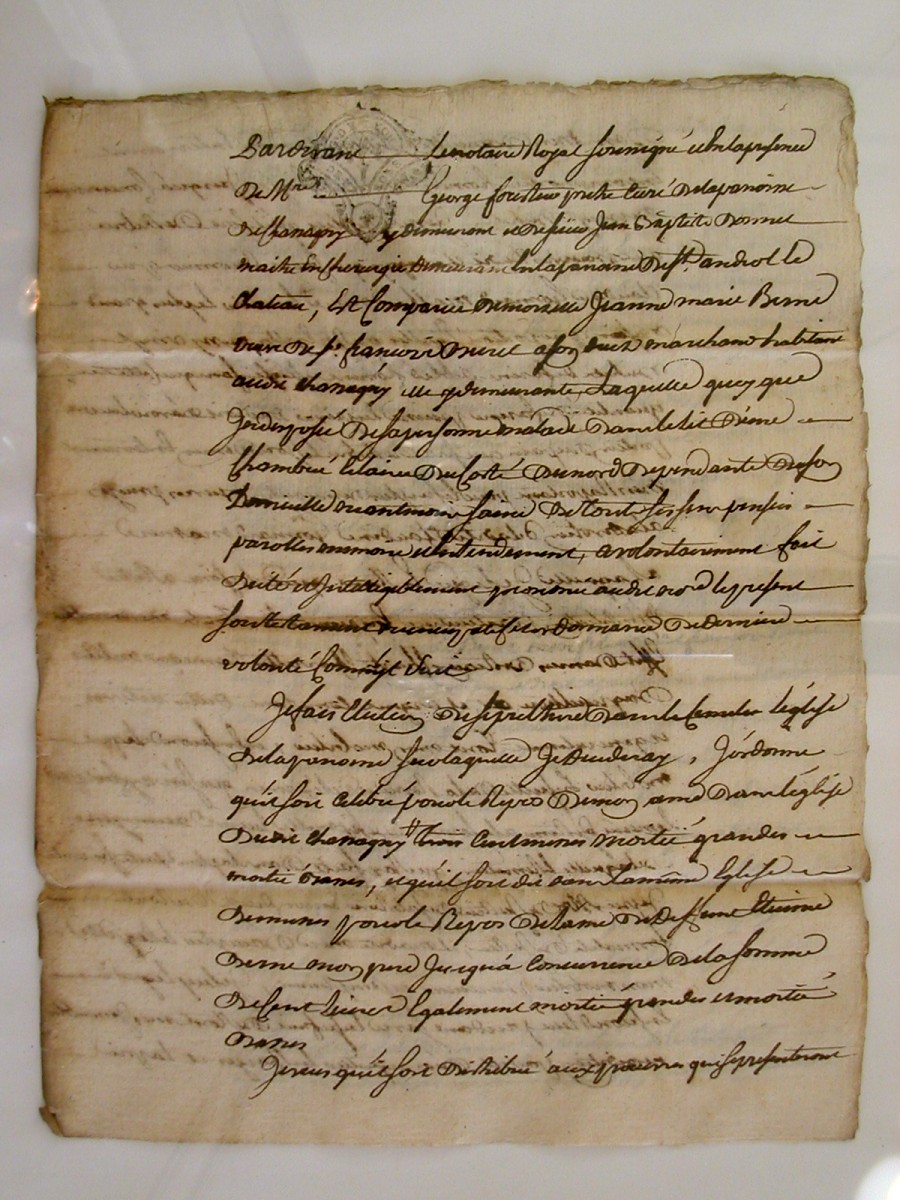 Pardevant Le notaire Royal soussigné et en la présence
De Mre George forestier pretre curé De la paroisse
De Chanagny y demeurant et De sieur Jean Baptiste Donnet
maitre En chirurgie Demeurant En la paroisse De St. andeol le
Chateau, Est Comparüe Demoiselle Jeanne marie Berne
veuve De sr. francois vivant marchand habitant
audit Chanagny elle y demeurante, Laquelle quoy que
Indisposée De sa personne malade Dans le lit D'une
Chambre Du Coté Du nord Dependante De son
Domicille neantmoins saine De tout ses sens pensées
parolles memoire et Entendement, a volontairement fait
Dicté et Intelligiblement prononcé audit no.re le present
son testament nuncupatif et ordonnance De Derniere
volonté Comm'il suit
Je fais Election De sepulture Dans le L'église
De la paroisse sur laquelle Je Decederay, J'ordonne
qu'il soit Celebré pour le Repos De mon ame Dans l'église
Dudit Chanagny trois Cent messes moitié grandes
moitié basses, et qu'il soit dit dans La même Eglise
Des messes pour le Repos De l'ame De Deffunt Etienne
Berne mon pere Jusqu'à Concurrence De la somme
De Cent livres Egalement moitié grandes et moitié
basses
Je veux qu'il soit Distribué aux pauvres qui se presenteront